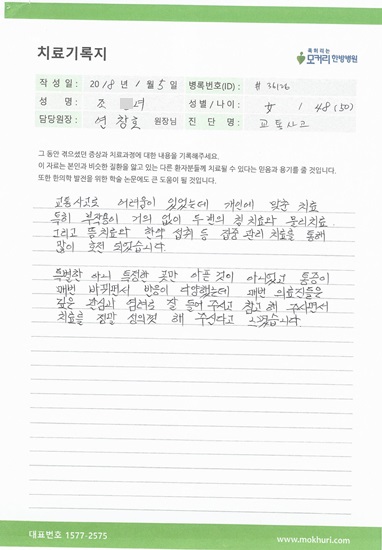 치료기록지
목허리는
모커리한방병원
작 성 일 : 2018 년 1 월 5 일 병록번호(ID) : # 36126
성 명 : 조 녀 성 별 / 나 이 : 女 / 48 (50)
담당원장 : 연 창호 원장님 진 단 명 : 교통사고
그 동안 겪으셨던 증상과 치료과정에 대한 내용을 기록해주세요.
이 자료는 본인과 비슷한 질환을 앓고 있는 다른 환자분들께 치료될 수 있다는 믿음과 용기를 줄 것입니다.
또한 한의학 발전을 위한 학술 논문에도 큰 도움이 될 것입니다.
교통사고로 어려움이 있었는데 개인에 맞춘 치료
특히 부작용이 거의 없이 두 번의 침 치료와 물리치료
그리고 뜸치료와 한약 섭취 등 집중 관리 치료를 통해
많이 호전 되었습니다.
특별한 아니 특정한 곳만 아픈 것이 아니었고 통증이
매번 바뀌면서 반응이 다양했는데 매번 의료진들은
깊은 관심과 염려로 잘 들어 주시고 참고 해 주시면서
치료를 정말 성의껏 해 주신다고 느꼈습니다.
대표번호 1577-2575
www.mokhuri.com